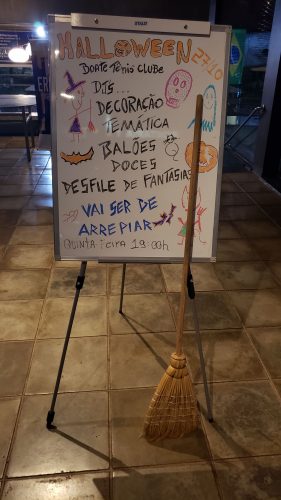 HALLOWEEN
27/10
BOATE TÊNIS CLUBE
DJS...
DECORAÇÃO
TEMÁTICA
BALÕES
DOCES
DESFILE DE FANTASIAS
VAI SER DE
ARREPIAR
QUINTA FEIRA 19:00h